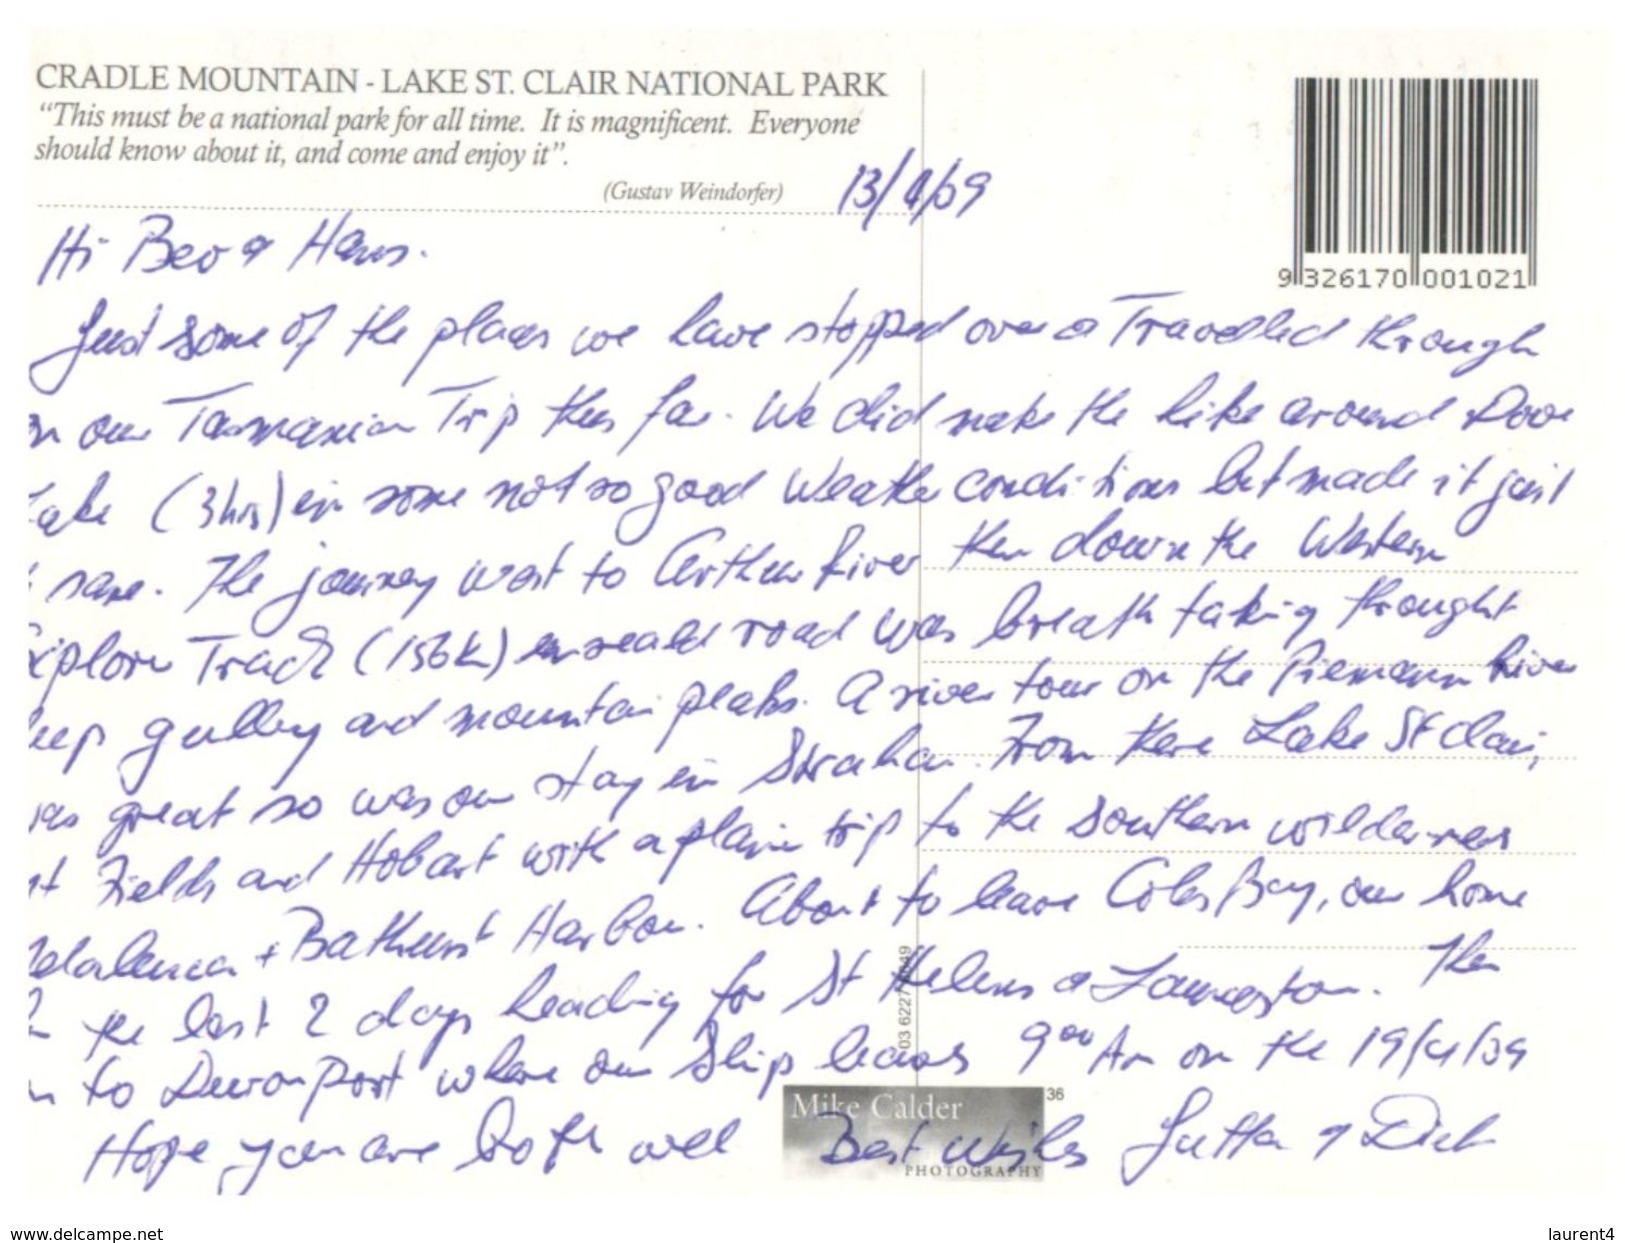 CRADLE MOUNTAIN - LAKE ST. CLAIR NATIONAL PARK
“This must be a national park for all time. It is magnificent. Everyone
should know about it, and come and enjoy it”.
(Gustav Weindorfer)
13/4/09
9 326170 001021
Hi Bev & Hans.
Just some of the places we have stopped over & Travelled through
on our Tasmanian Trip thus far. We did make the hike around Dove
Lake (3hrs) in some not so good Weather conditions but made it just
same. The journey west to Arthur River then down the Western
Explorer Track (156k) unseald road was breath taking throught
deep gulley and mountain peaks. A river tour on the Piemann River
was great so was our stay in Strahan. From there Lake St Clair,
Mt Fields and Hobart with a plane trip to the Southern wilderness
Melaleuca + Bathurst Harbour. About to leave Coles Bay, our home
the last 2 days heading for St Helens & Launceston. Then
on to Devonport where our Ship leaves 9⁰⁰ Am on the 19/4/09
Hope you are both well Best Wishes Jutta & Dick
03 6227
36
Mike Calder
PHOTOGRAPHY
www.delcampe.net
laurent4